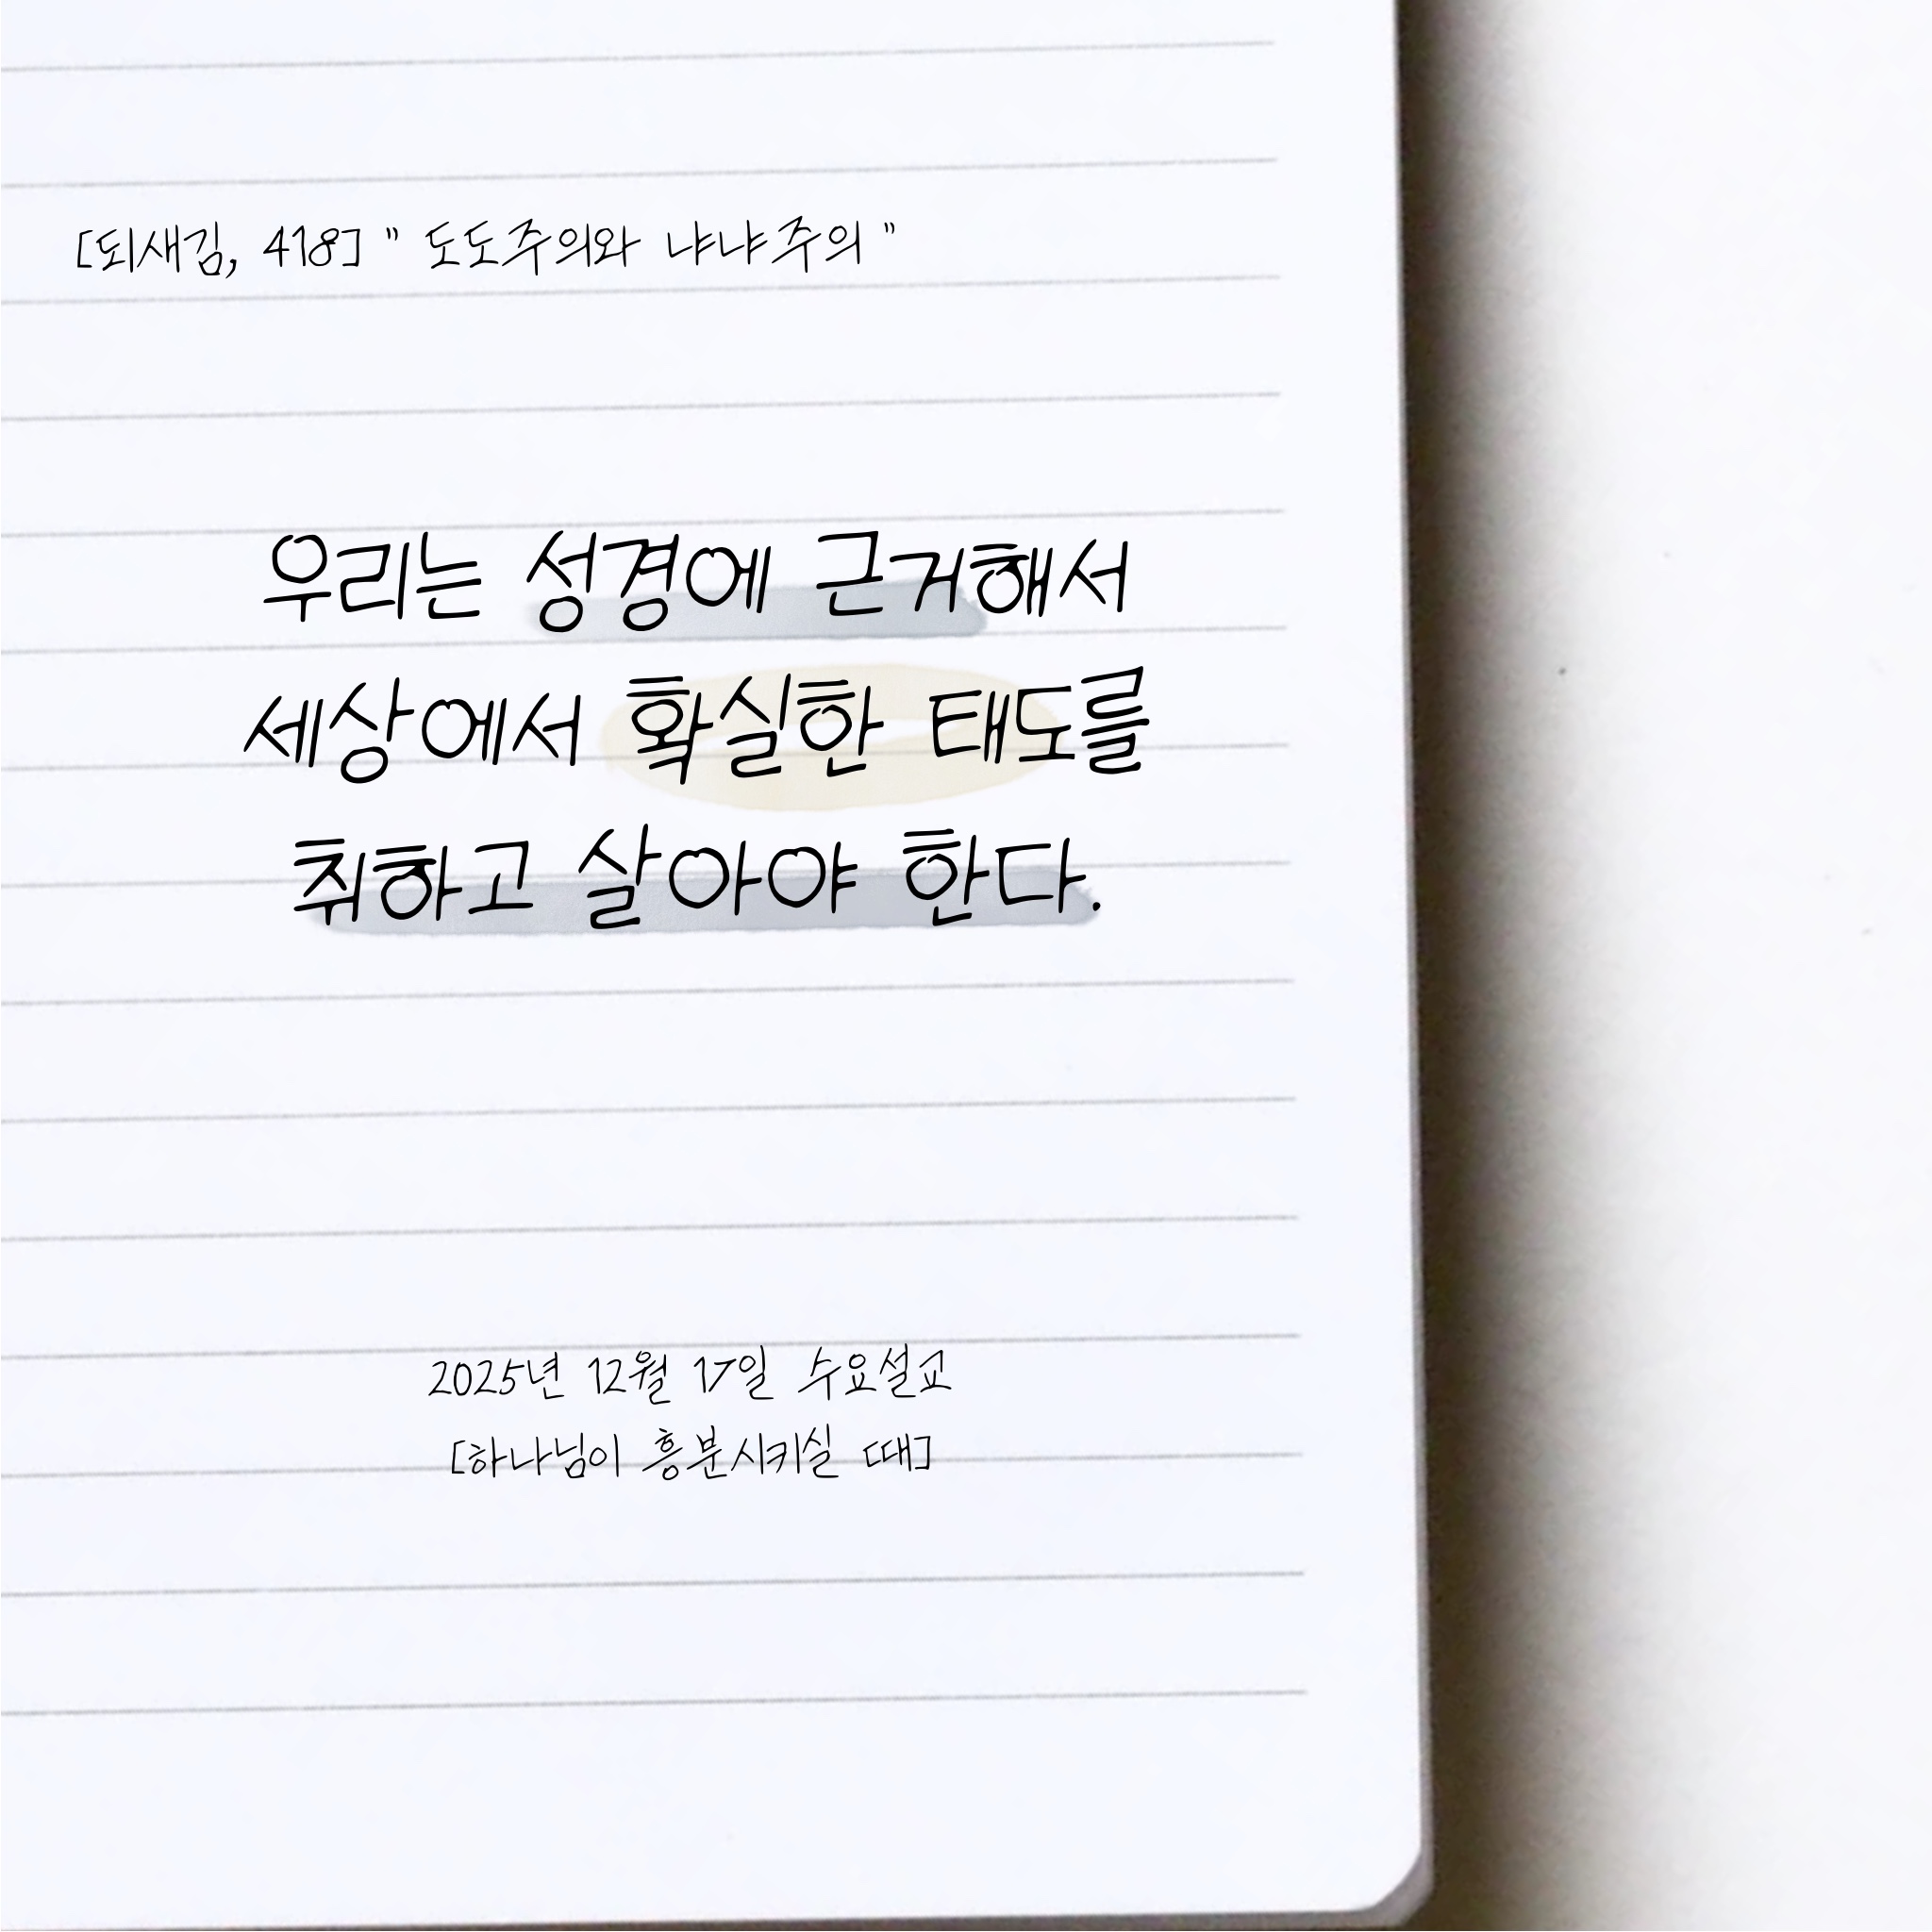 [되새김, 418] " 도도주의와 냐냐주의 "
우리는 성경에 근거해서
세상에서 확실한 태도를
취하고 살아야 한다.
2025년 12월 17일 수요설교
[하나님이 흥분시키실 때]